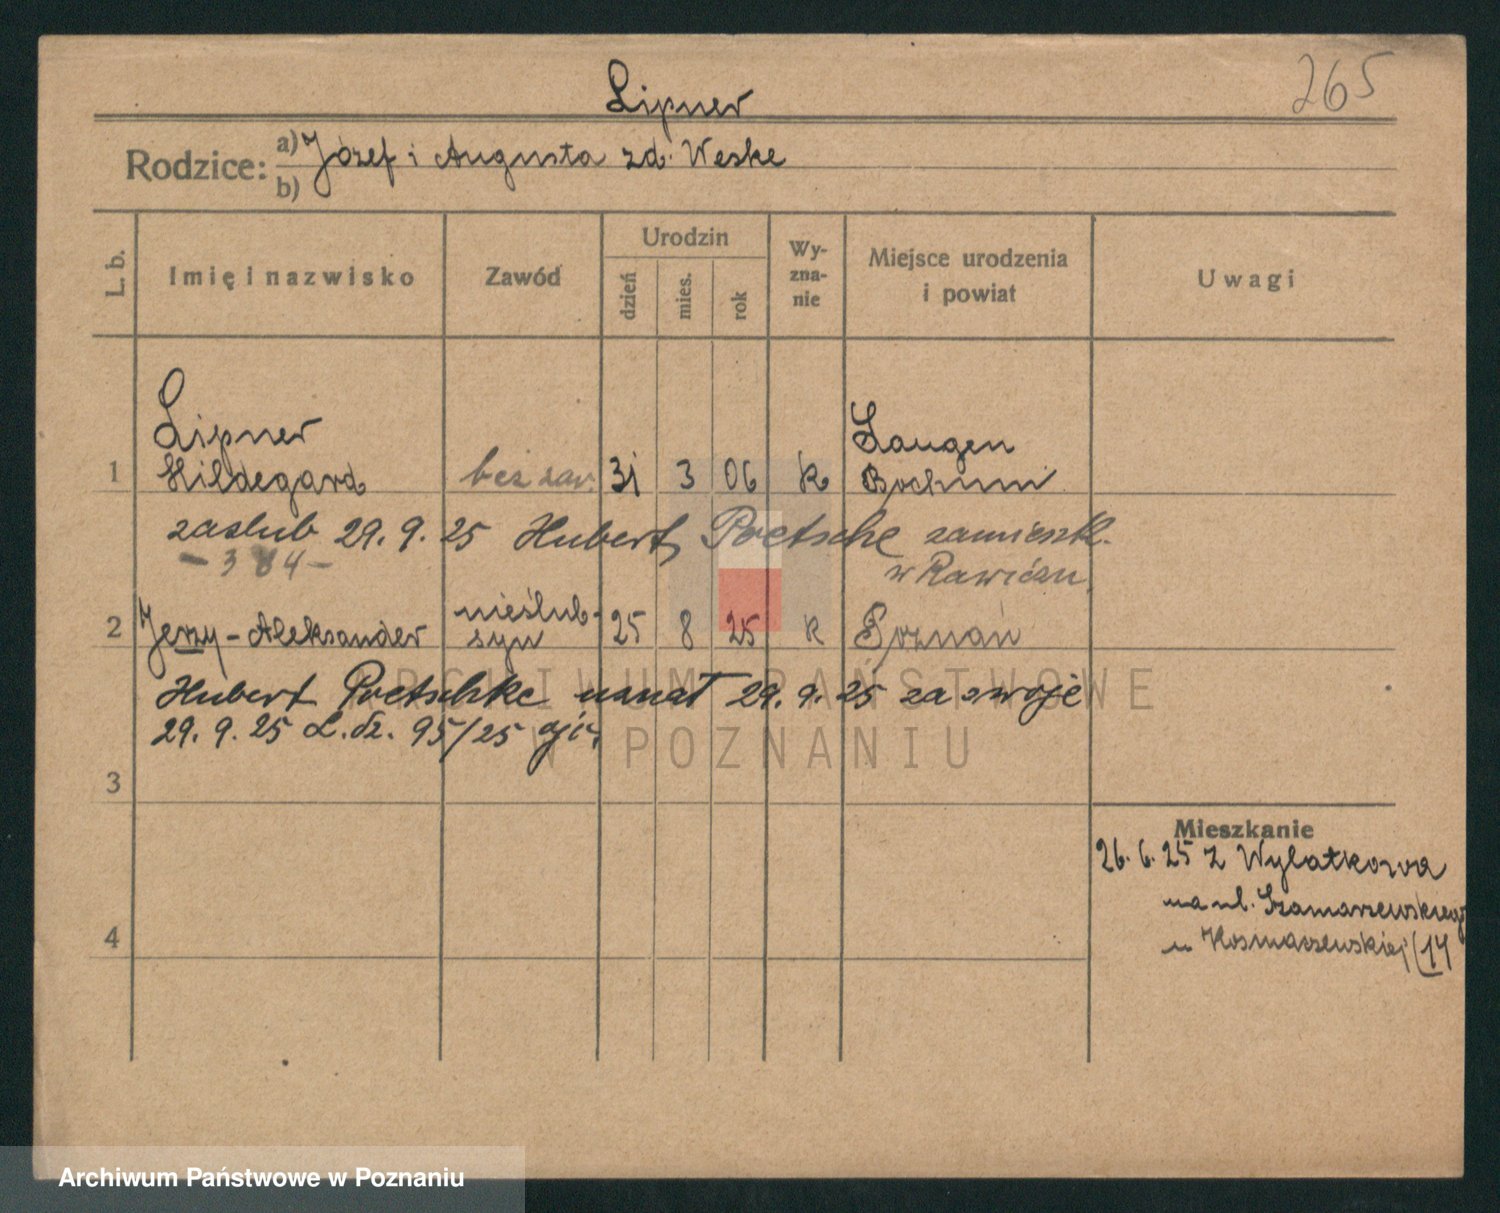 265
Lipner
Rodzice: a) Józef i Augusta zd. Weske
b)
L. b.
Imię i nazwisko
Zawód
Urodzin
dzień
mies.
rok
Wy-
zna-
nie
Miejsce urodzenia
i powiat
Uwagi
Lipner Langen
1 Hildegard bez zaw. 31 3 06 k Bochum
zaslub 29. 9. 25 Hubert Poetsche zamieszk.
w Rawiczu
2 Jerzy-Aleksander nieślub- syn 25 8 25 k Poznań
Hubert Poetschke uznał 29. 9. 25 za swoje
29. 9. 25 L. dz. 95/25
3
Mieszkanie
26. 6. 25 z Wylatkowa
na ul. Szamarzewskiego
u Kosmaczewskiej (14
4
ARCHIWUM PAŃSTWOWE
W POZNANIU
Archiwum Państwowe w Poznaniu